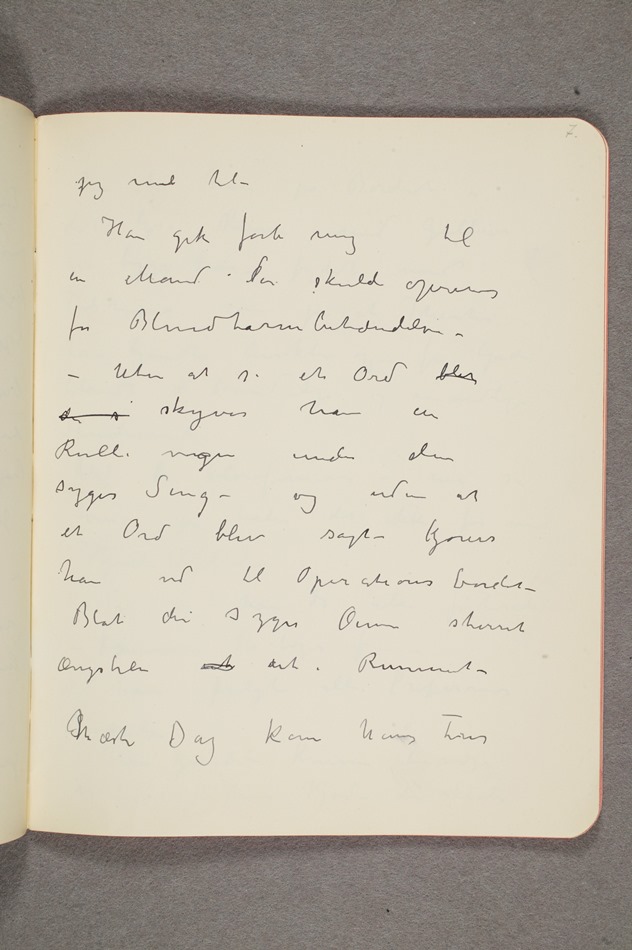 7.
jeg med til –
Han gik forbi mig til
en Mand der skulde opereres
for Blindtarmbetændelse –
– Uten at si et Ord blev
de s skyves han en
Rulle vogn under den
syges Seng – og uden at
et Ord blev sagt – kjøres
han ud til Operationsbordet –
Blot den syges Øine stirret
ængstelig ud i Rummet –
Næste Dag kom hans